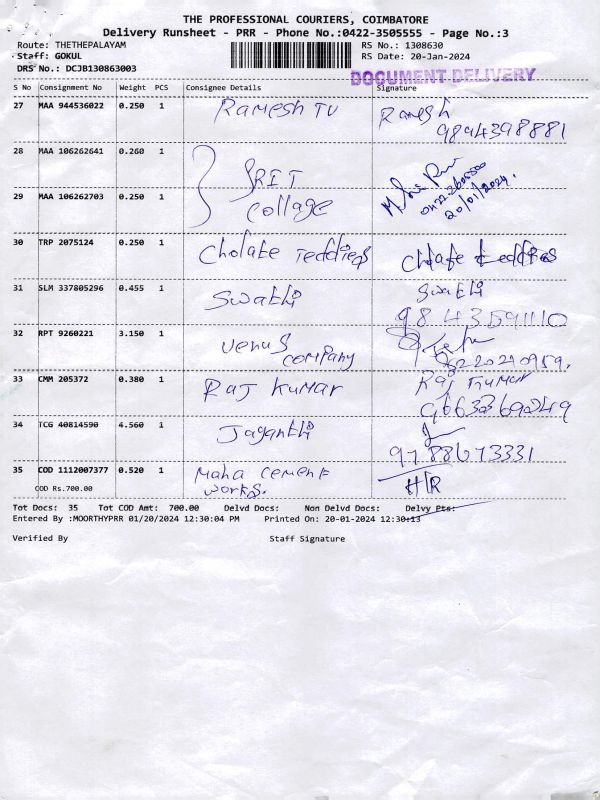 THE PROFESSIONAL COURIERS, COIMBATORE
Delivery Runsheet - PRR - Phone No.:0422-3505555 - Page No.:3
Route: THETHEPALAYAM RS No.: 1308630
Staff: GOKUL RS Date: 20-Jan-2024
DRS No.: DCJB130863003
DOCUMENT DELIVERY
S No Consignment No Weight PCS Consignee Details Signature
27 MAA 944536022 0.250 1 Ramesh TV Ramesh
9894398881
28 MAA 106262641 0.260 1
SRIT
29 MAA 106262703 0.250 1 Collage
20/01/2024.
30 TRP 2075124 0.250 1 Cholate Teddies Chlate teddies
31 SLM 337805296 0.455 1 Swathi Swathi
9843591110
32 RPT 9260221 3.150 1 Venus
company
33 CMM 205372 0.380 1 Raj Kumar Raj Kumar
34 TCG 40814590 4.560 1 Jaganthi
9788673331
35 COD 1112007377 0.520 1 Maha cement
COD Rs.700.00 works.
Tot Docs: 35 Tot COD Amt: 700.00 Delvd Docs: Non Delvd Docs: Delvy Pts:
Entered By :MOORTHYPRR 01/20/2024 12:30:04 PM Printed On: 20-01-2024 12:30:13
Verified By Staff Signature